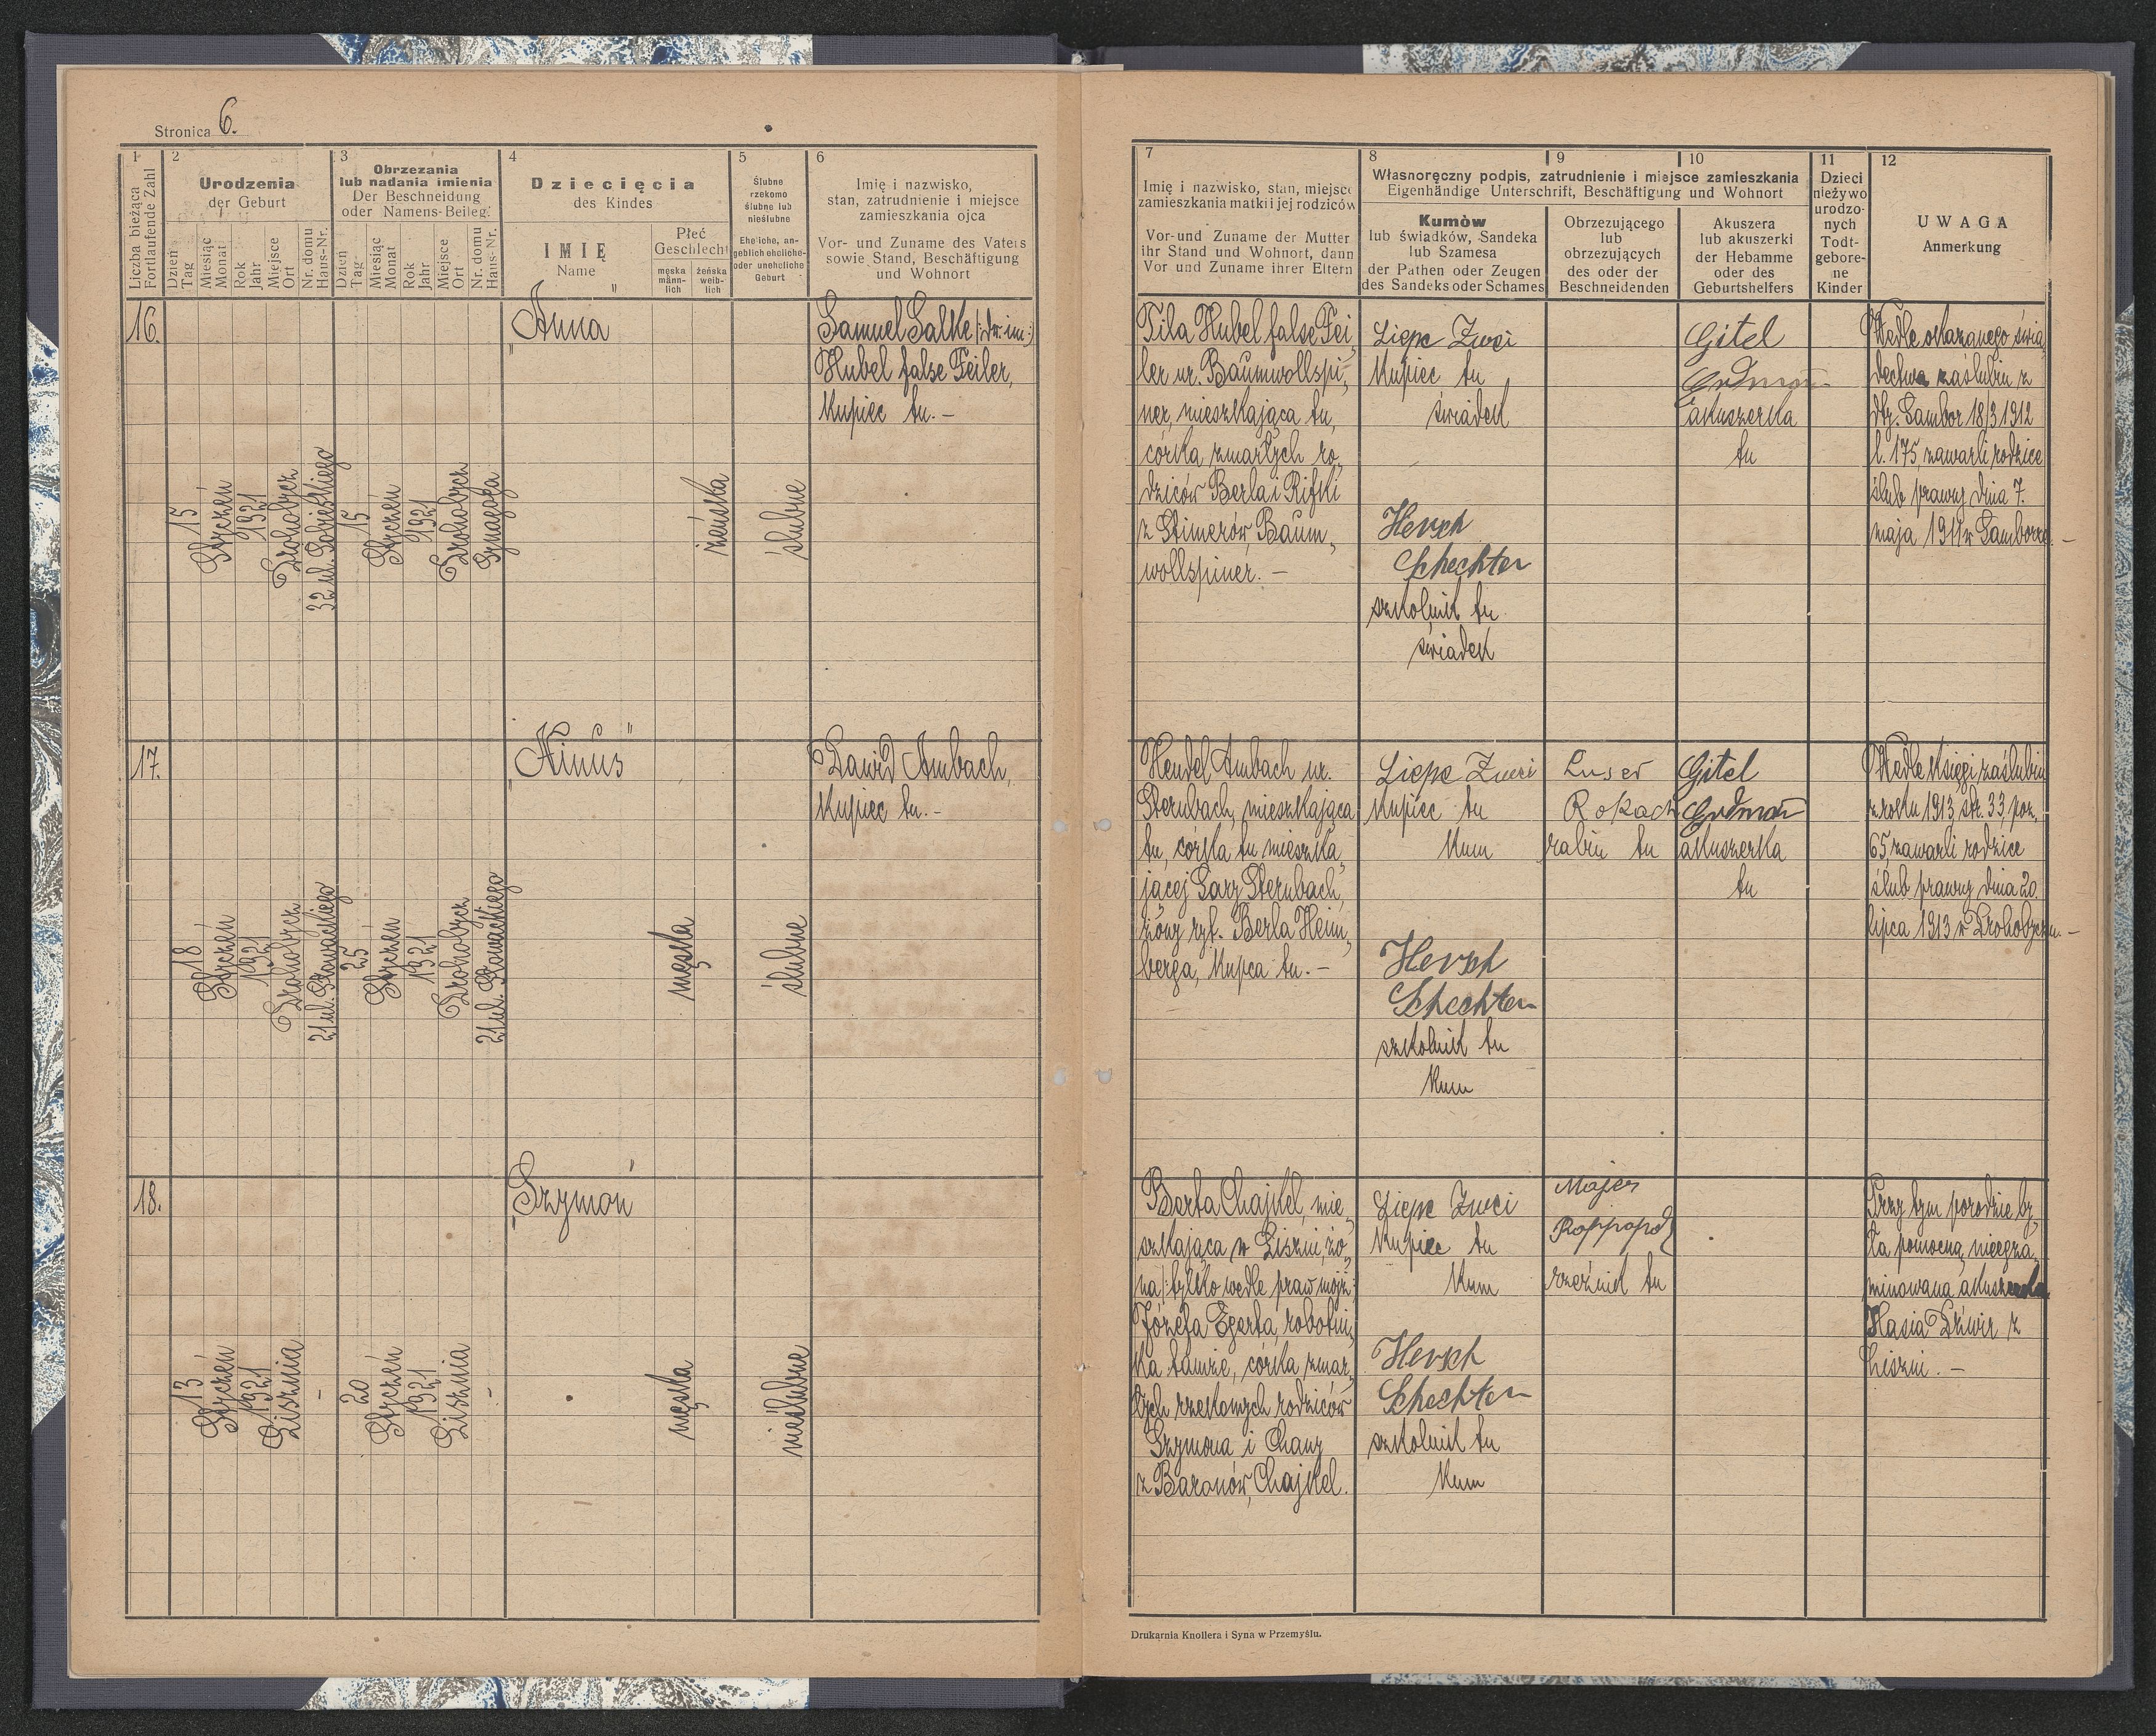 Stronica 6.
1
Liczba bieżąca
Fortlaufende Zahl
2
Urodzenia
der Geburt
Dzień
Tag
Miesiąc
Monat
Rok
Jahr
Miejsce
Ort
Nr. domu
Haus-Nr.
3
Obrzezania
lub nadania imienia
Der Beschneidung
oder Namens-Beileg.
Dzień
Tag
Miesiąc
Monat
Rok
Jahr
Miejsce
Ort
Nr. domu
Haus-Nr.
4
Dziecięcia
des Kindes
IMIĘ
Name
Płeć
Geschlecht
męska
männ-
lich
żeńska
weib-
lich
5
Ślubne
rzekomo
ślubne lub
nieślubne
Eheliche, an-
geblich eheliche-
oder uneheliche
Geburt
6
Imię i nazwisko,
stan, zatrudnienie i miejsce
zamieszkania ojca
Vor- und Zuname des Vaters
sowie Stand, Beschäftigung
und Wohnort
16.
15
Styczeń
1921
Drohobycz
32 ul. Sobieskiego
15
Styczeń
1921
Drohobycz
Synagoga
„Anna"
żeńska
ślubne
Samuel Salke /:dw. im.:/
Hubel false Feiler,
kupiec tu. –
17.
18
Styczeń
1921
Drohobycz
21 ul. Słowackiego
25
Styczeń
1921
Drohobycz
21 ul. Słowackiego
„Ainus"
męska
ślubne
Dawid Ambach,
kupiec tu. –
18.
13
Styczeń
1921
Lisznia
-
20
Styczeń
1921
Lisznia
-
„Szymon"
męska
nieślubne
7
Imię i nazwisko, stan, miejsce
zamieszkania matki i jej rodziców
Vor-und Zuname der Mutter
ihr Stand und Wohnort, dann
Vor und Zuname ihrer Eltern
8
9
10
Własnoręczny podpis, zatrudnienie i miejsce zamieszkania
Eigenhändige Unterschrift, Beschäftigung und Wohnort
Kumòw
lub świadków, Sandeka
lub Szamesa
der Pathen oder Zeugen
des Sandeks oder Schames
Obrzezującego
lub
obrzezujących
des oder der
Beschneidenden
Akuszera
lub akuszerki
der Hebamme
oder des
Geburtshelfers
11
Dzieci
nieżywo
urodzo-
nych
Todt-
gebore-
ne
Kinder
12
UWAGA
Anmerkung
Tila Hubel false Fei„
ler ur. Baumwollspi„
ner, mieszkająca tu,
córka zmarłych ro„
dziców Berla i Rifki
z Stimerów Baum„
wollspiner. –
Liepe Zwei
kupiec tu
świadek
Hersch
Schechter
szkolnik tu
świadek
Gitel
Erdman
akuszerka
tu
Wedle okazanego świa„
dectwa zaślubin z
dtg. Sambor 18/3 1912
l. 175, zawarli rodzice
ślub prawny dnia 7.
maja 1911 w Samborze. –
Hendel Ambach ur.
Sternbach, mieszkająca
tu, córka tu mieszka„
jącej Sary Sternbach,
żony ryt. Berla Heim„
berga, kupca tu. –
Liepe Zwei
kupiec tu
kum
Hersch
Schechter
szkolnik tu
kum
Luser
Rokach
rabin tu
Gitel
Erdman
akuszerka
tu
Wedle księgi zaślubin
z roku 1913, str. 33, poz.
65, zawarli rodzice
ślub prawny dnia 20.
lipca 1913 w Drohobyczu. –
Berta Chajkel, mie„
szkająca w Liszni, żo„
na /:tylko wedle praw mojż:/
Józefa Egerta, robotni„
ka tamże, córka zmar„
łych rzekomych rodziców
Szymona i Chany
z Baranów, Chajkel.
Liepe Zwei
kupiec tu
kum
Hersch
Schechter
szkolnik tu
kum
Majer
Roppapod
rzeźnik tu
Przy tym porodzie by„
ła pomocną nieegza„
minowana akuszerka
Kasia Dźwir z
Liszni. –
Drukarnia Knollera i Syna w Przemyślu.